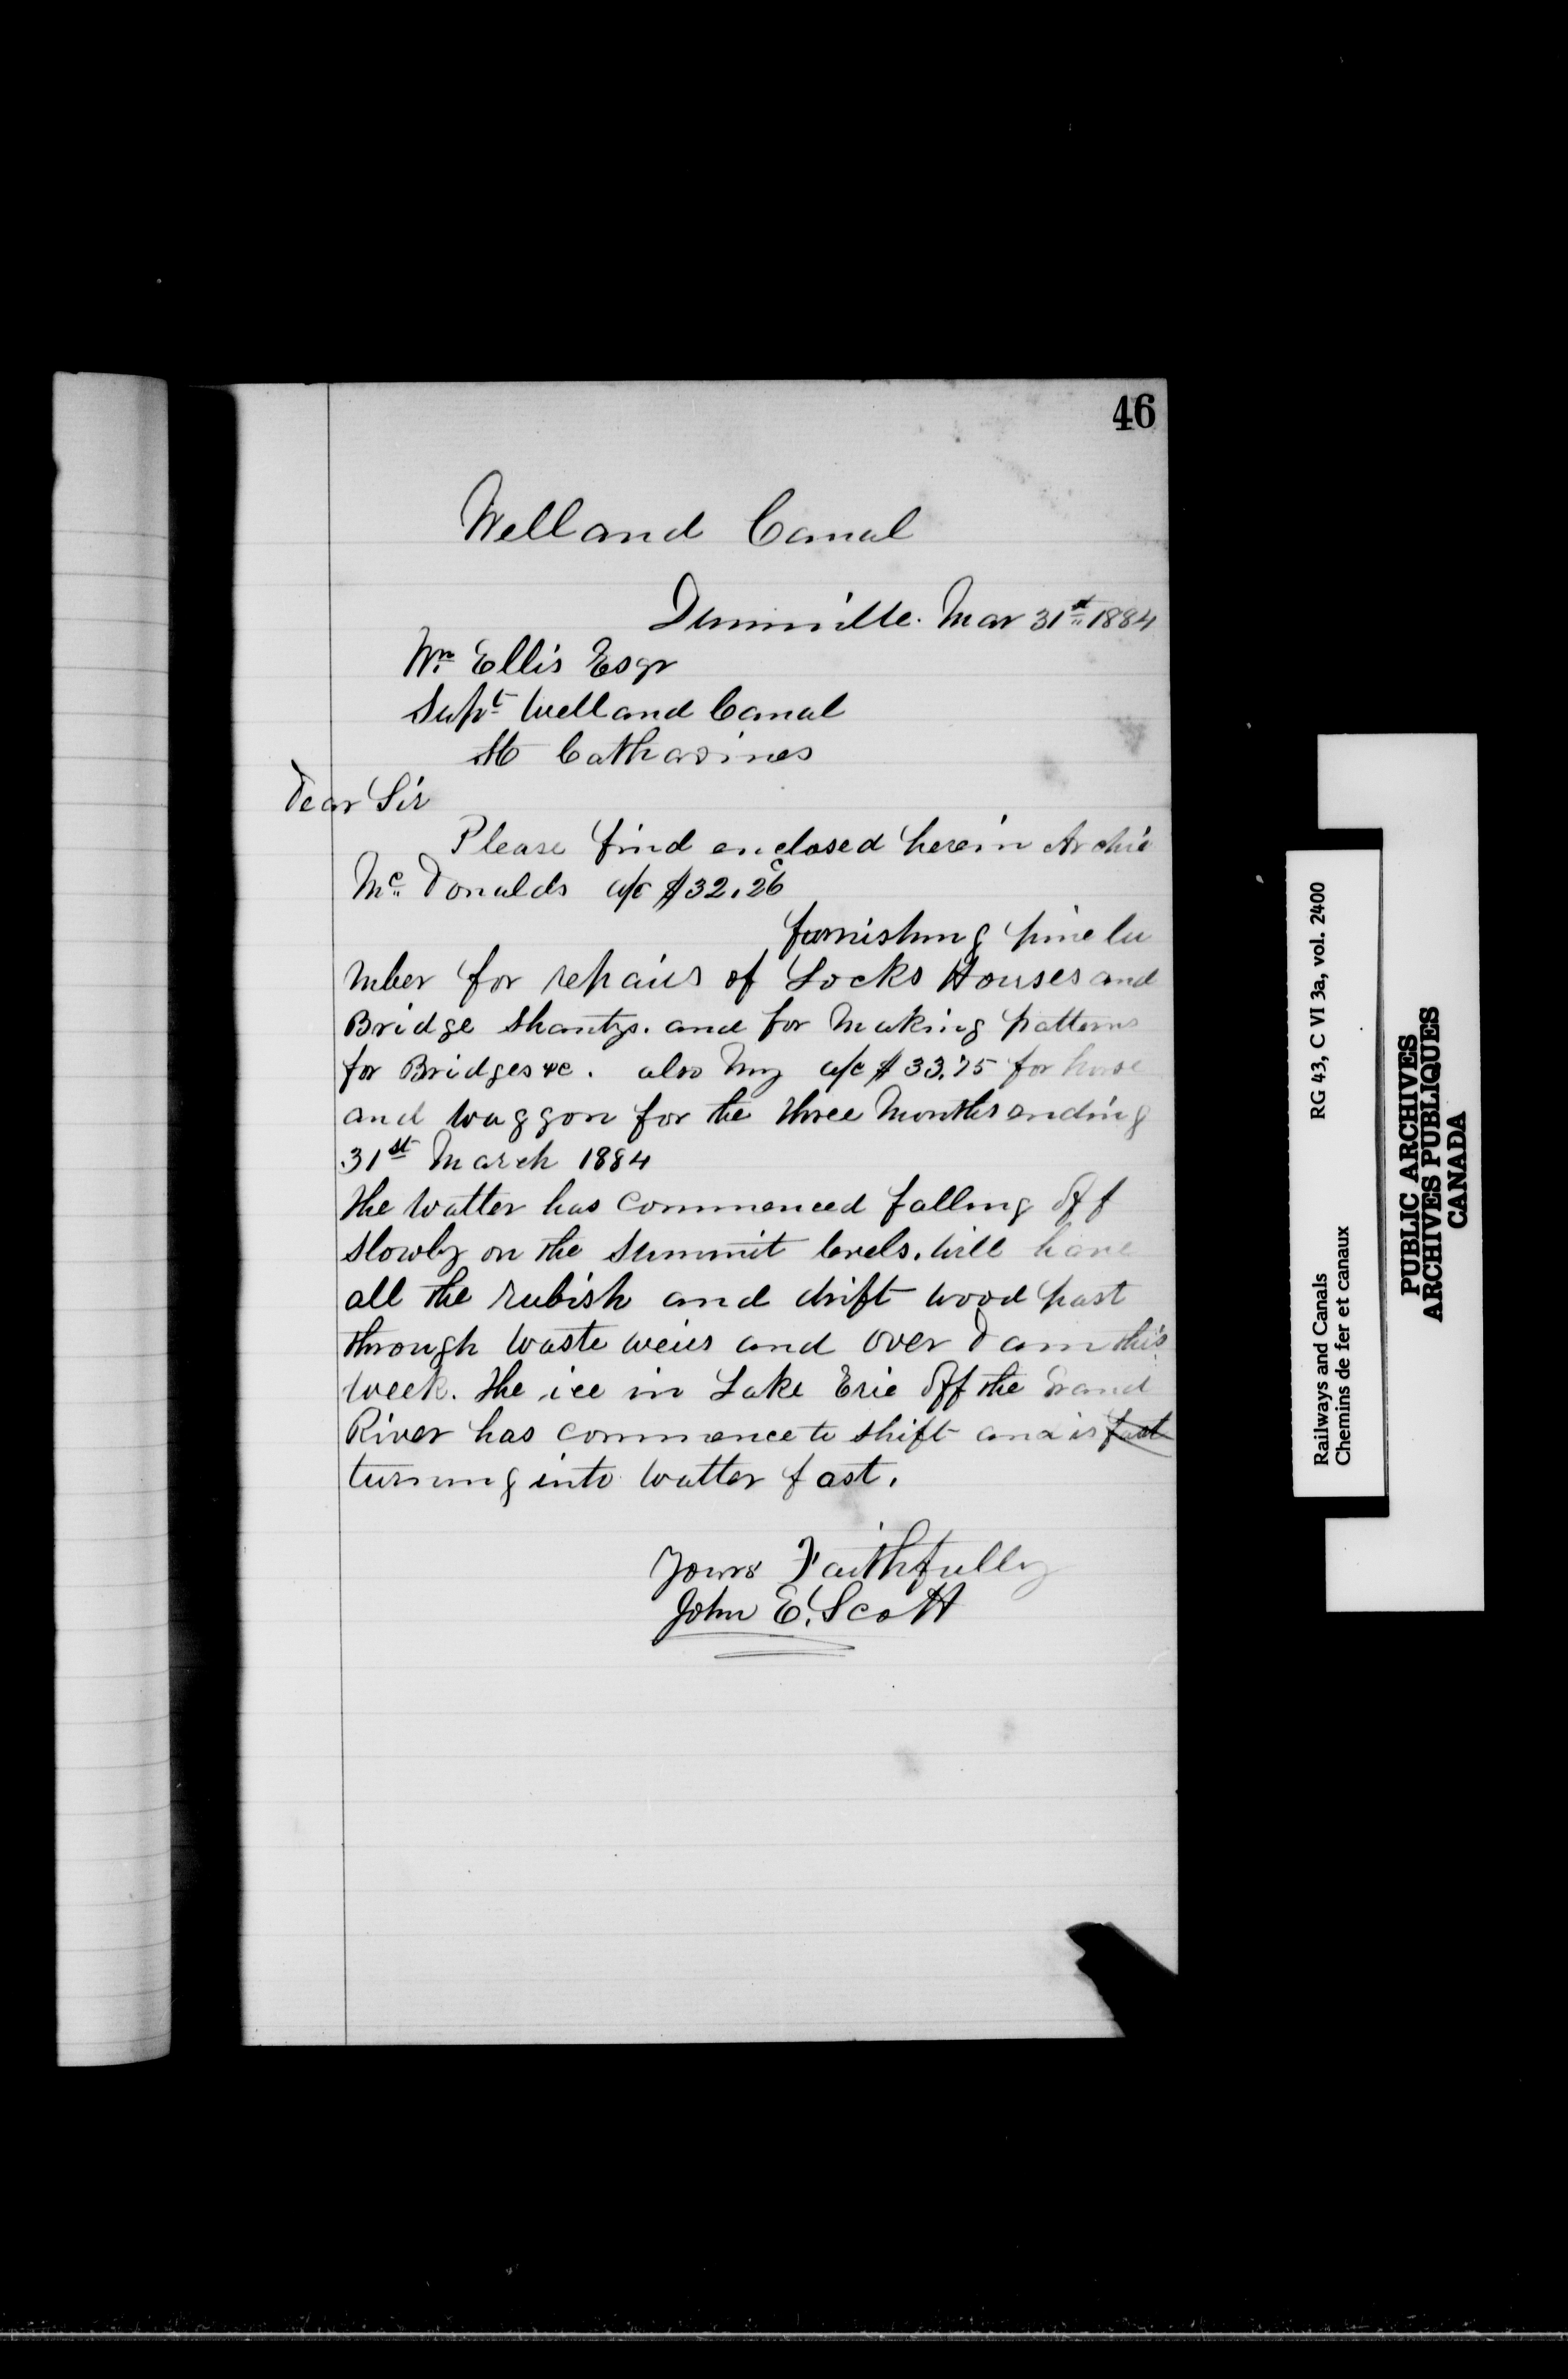 46
Welland Canal
Dunnville. Mar 31st 1884
Wm Ellis Esqr
Supt Welland Canal
St Catharines
Dear Sir
Please find enclosed herein Archie
Mc Donalds a/c $32.26c
furnishing pine lu
mber for repairs of Locks Houses and
Bridge Shantys. and for Making patterns
for Bridges &c. also My a/c $33.75 for horse
and waggon for the three Months ending
31st March 1884
The watter has commenced falling off
slowly on the summit levels. will have
all the rubish and drift wood past
through waste weirs and over Dam this
week. The ice in Lake Erie off the Grand
River has commence to shift and is fast
turning into watter fast.
Yours Faithfully
John E. Scott
Railways and Canals RG 43, C VI 3a, vol. 2400
Chemins de fer et canaux
PUBLIC ARCHIVES
ARCHIVES PUBLIQUES
CANADA